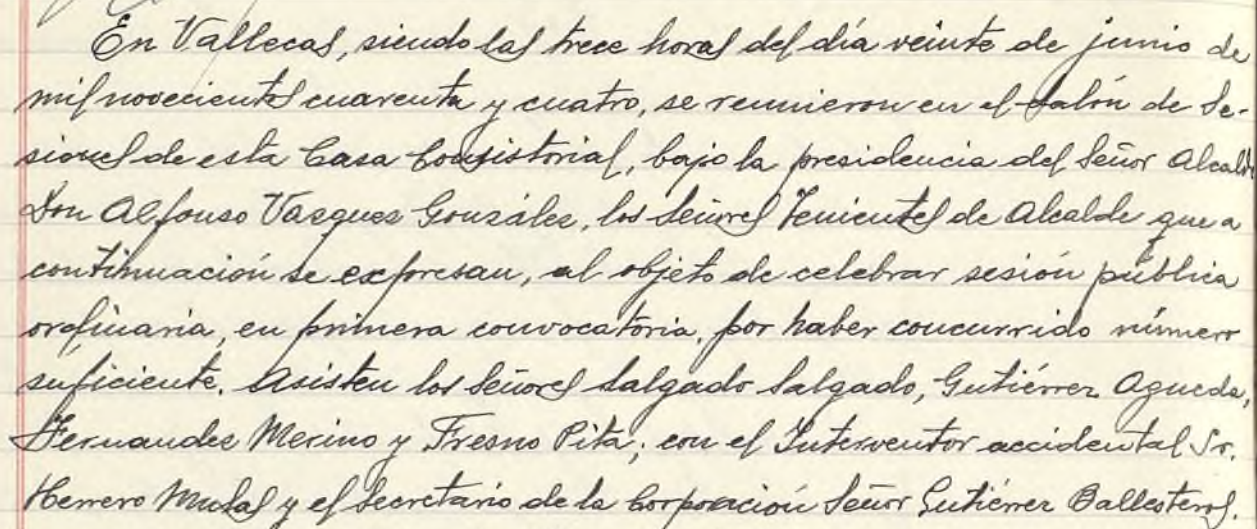 En Vallecas, siendo las trece horas del día veinte de junio de
mil novecientos cuarenta y cuatro, se reunieron en el Salón de Se-
siones de esta Casa Consistorial, bajo la presidencia del Señor Alcalde
Don Alfonso Vazquez González, los Señores Tenientes de Alcalde que a
continuación se expresan, al objeto de celebrar sesión pública
ordinaria, en primera convocatoria, por haber concurrido número
suficiente. Asisten los Señores Salgado Salgado, Gutiérrez Agueda,
Fernandez Merino y Fresno Pita; con el Interventor accidental Sr.
Herrero Mulas y el Secretario de la Corporación Señor Gutiérrez Ballesteros.